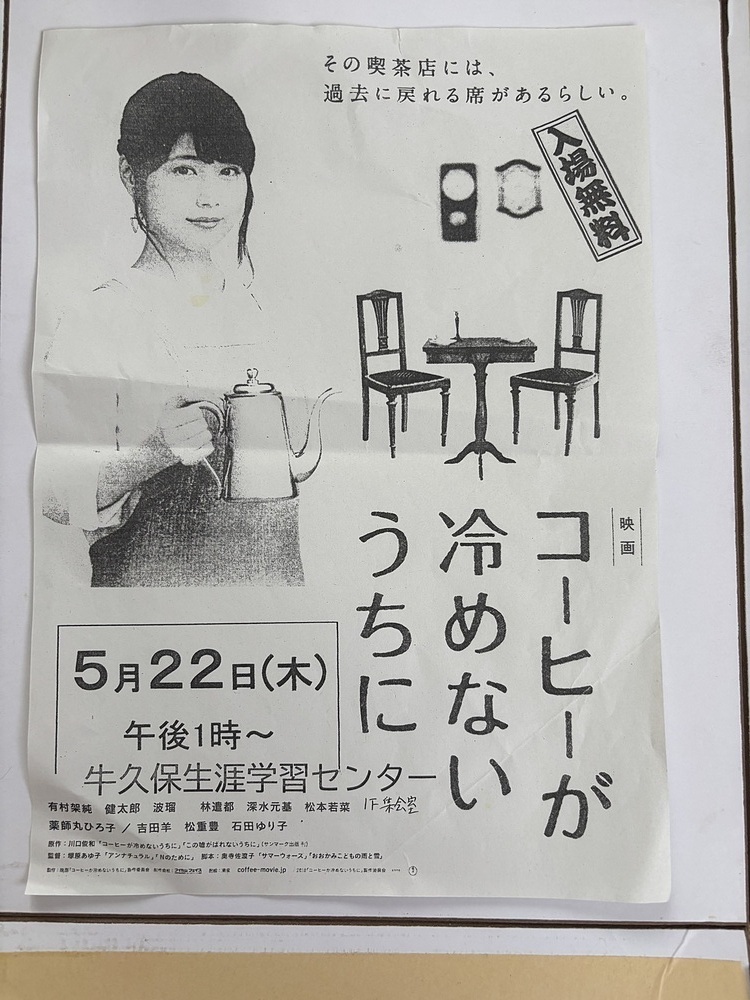 その喫茶店には、
過去に戻れる席があるらしい。
入場無料
映画
コーヒーが
冷めない
うちに
5月22日(木)
午後1時～
牛久保生涯学習センター
1F 集会室
有村架純 健太郎 波瑠 林遣都 深水元基 松本若菜
薬師丸ひろ子 / 吉田羊 松重豊 石田ゆり子
原作:川口俊和「コーヒーが冷めないうちに」「この嘘がばれないうちに」(サンマーク出版 刊)
監督:塚原あゆ子「アンナチュラル」「Nのために」 脚本:奥寺佐渡子「サマーウォーズ」「おおかみこどもの雨と雪」
製作:映画「コーヒーが冷めないうちに」製作委員会 配給:東宝 coffee-movie.jp 2018「コーヒーが冷めないうちに」製作委員会